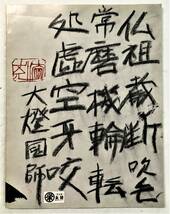 仏祖截断吹毛
常磨機輪転
処虚空牙咬
大燈国師